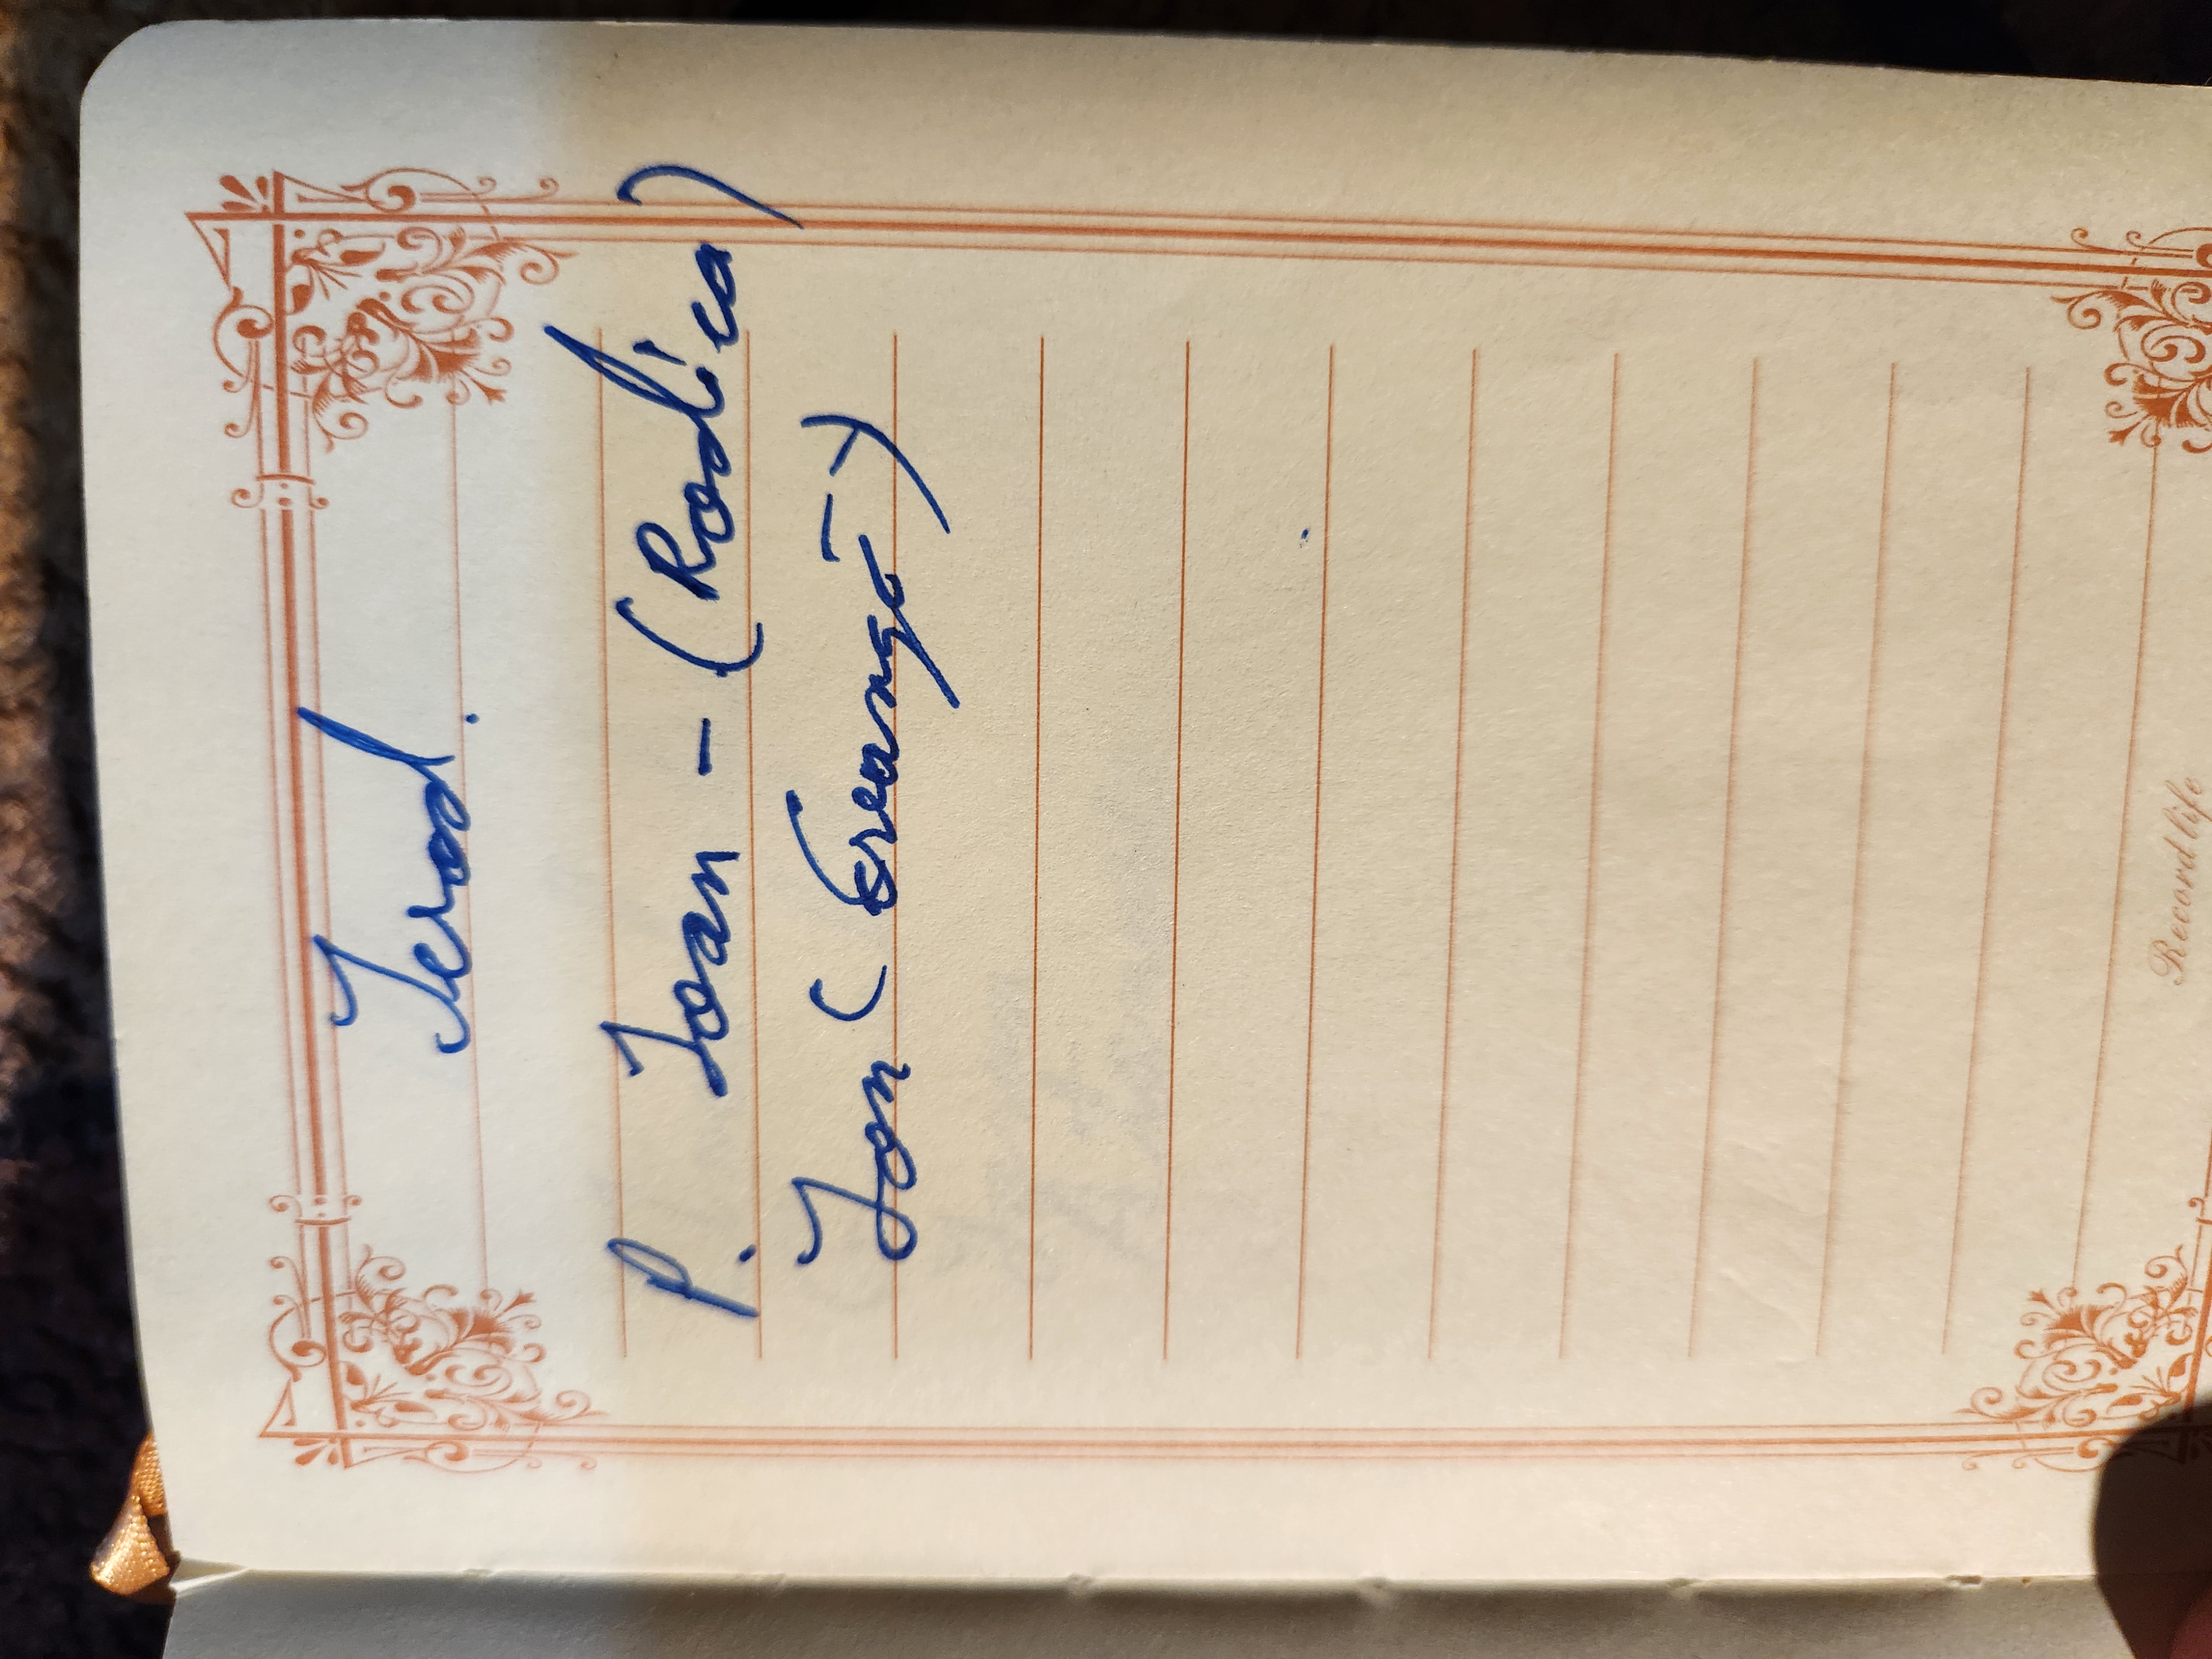 Ierod.
P. Ioan - (Rodica)
Ion (Creangă -)
Record life